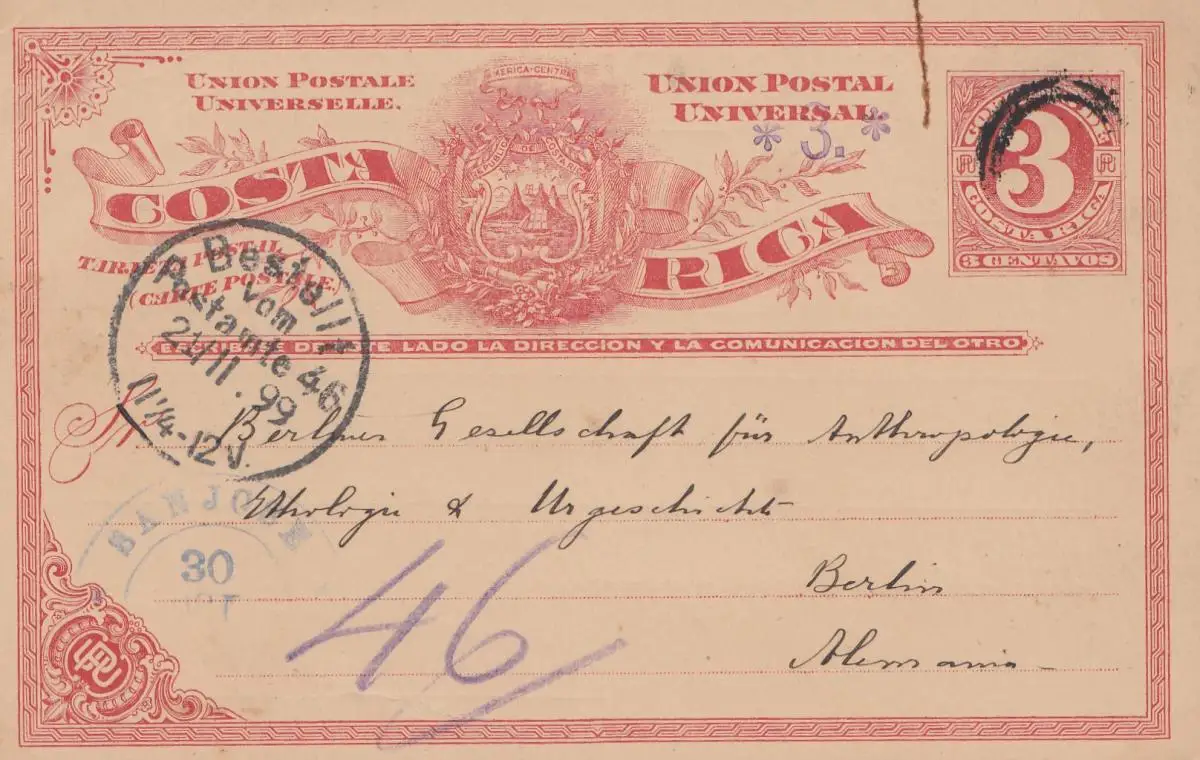 UNION POSTALE
UNIVERSELLE.
AMERICA-CENTRAL
UNION POSTAL
UNIVERSAL.
* 3. *
REPUBLICA DE COSTA RICA
COSTA
RICA
TARJETA POSTAL
(CARTE POSTALE.)
3
COSTA RICA
3 CENTAVOS
ESCRIBASE DE ESTE LADO LA DIRECCION Y LA COMUNICACION DEL OTRO
Bestellt
vom
Postamte 46
21/11
.99
11 1/4-12V.
Sr
Berliner Gesellschaft für Anthropologie,
Ethnologie & Urgeschichte
Berlin
Alemania
SAN JOSE
30
OCT
46